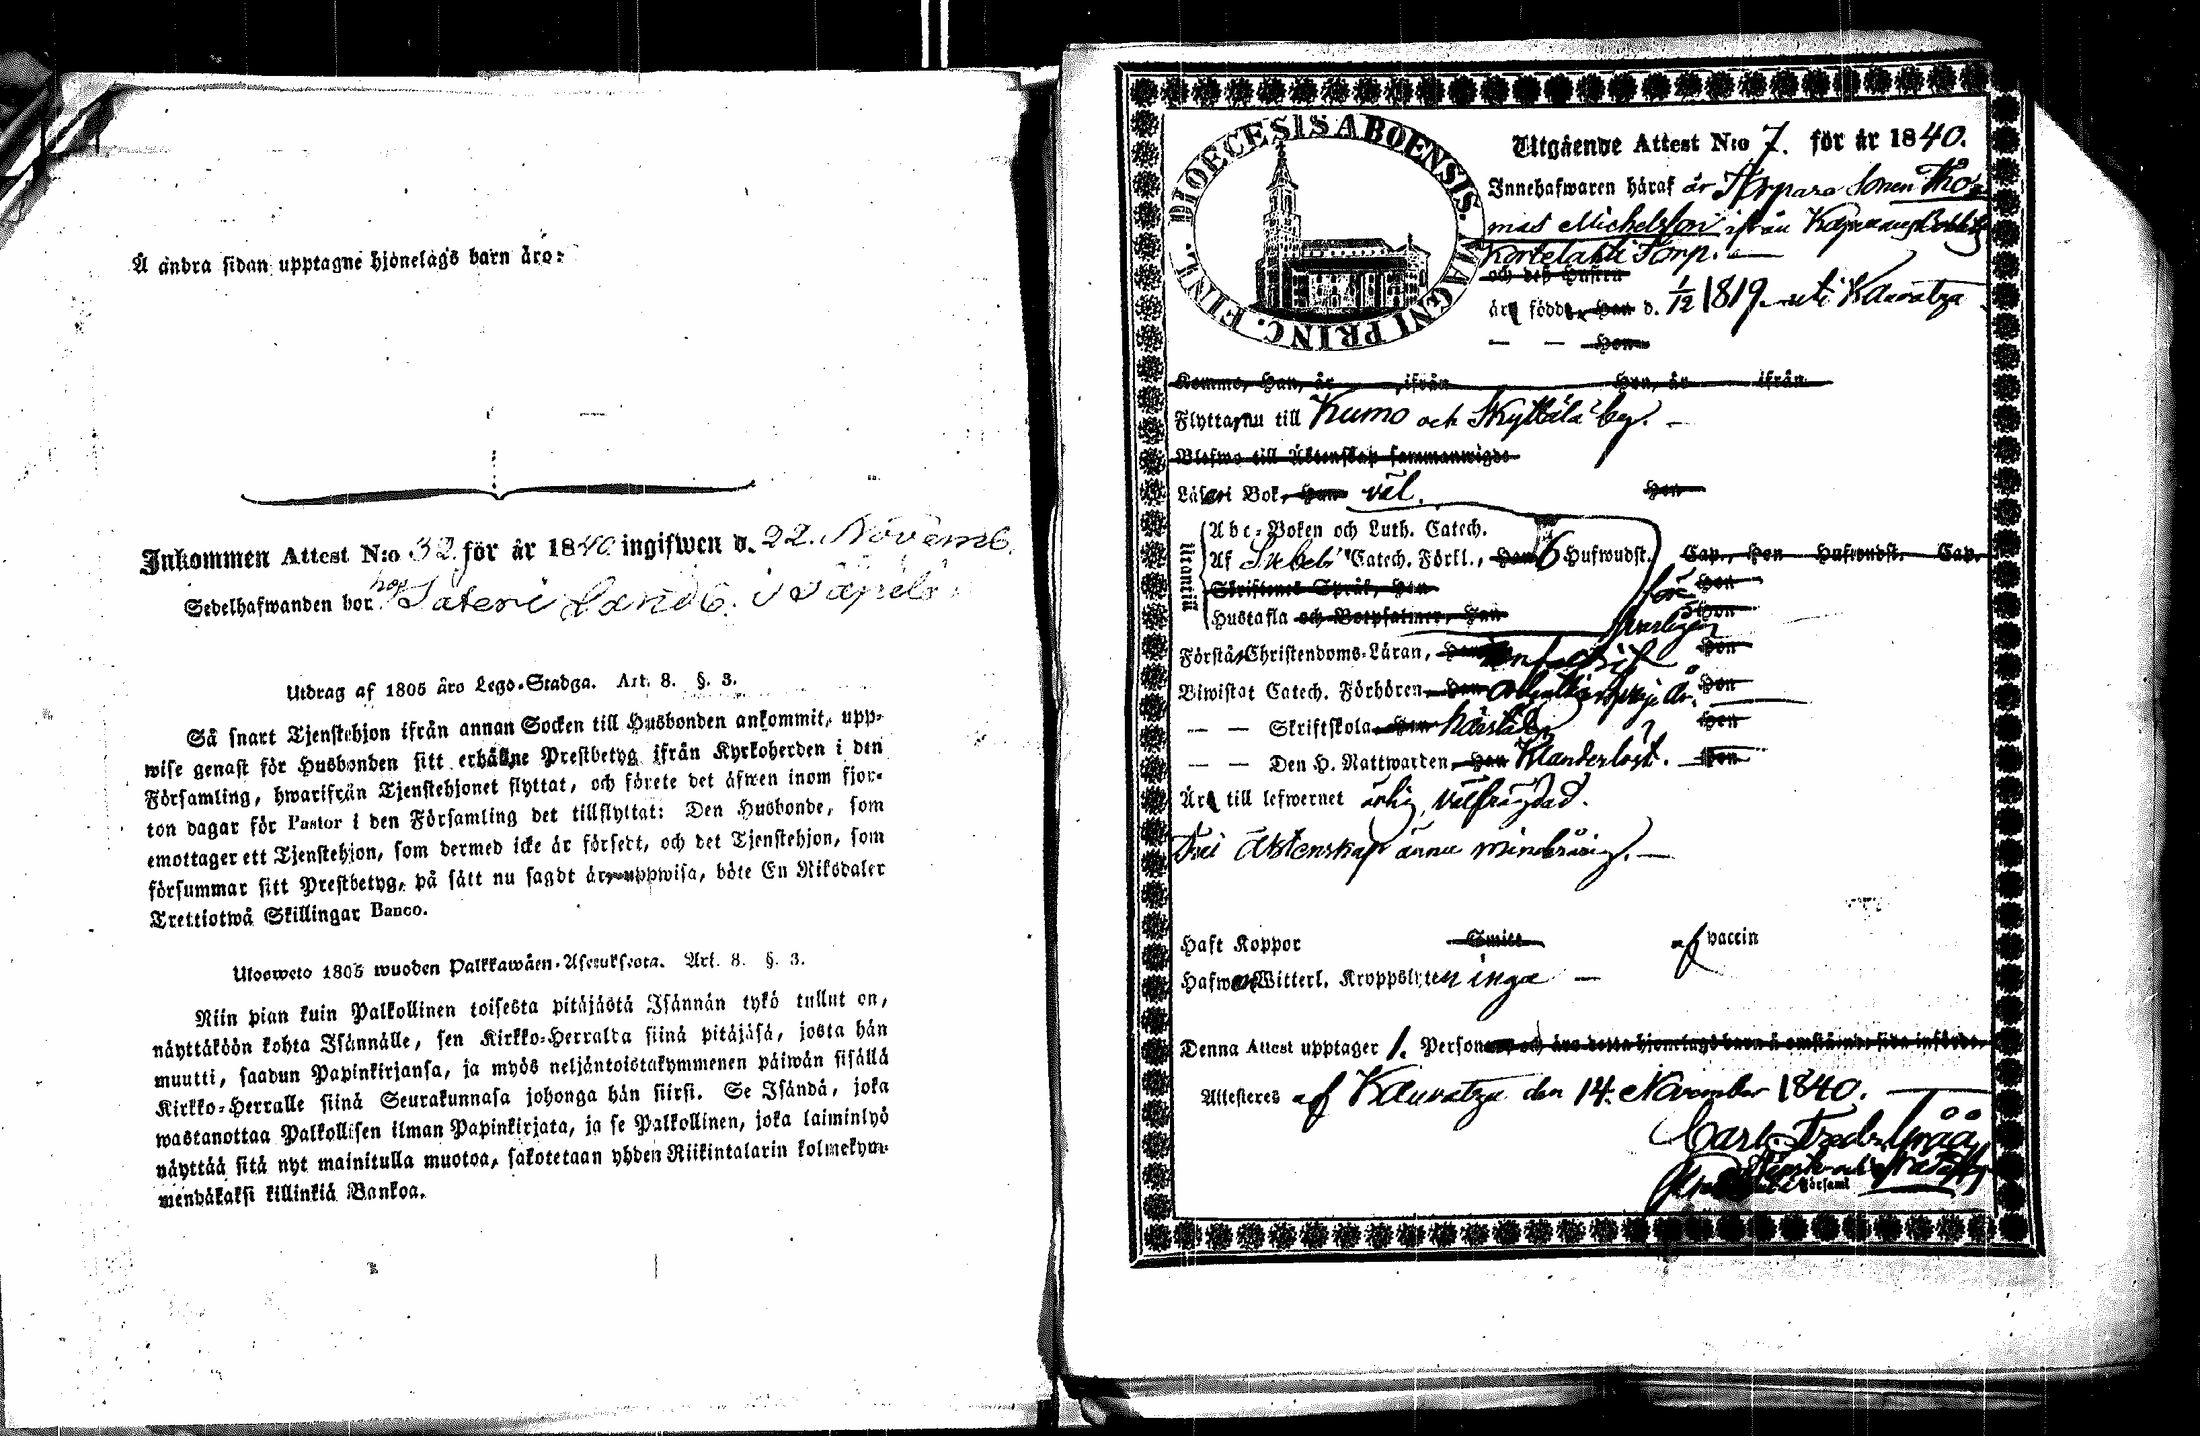 Å andra sidan upptagne hjonelags barn äro:
Inkommen Attest N:o 32 för år 1840 ingifwen d. 22. Novemb.
Sedelhafwanden bor hos Säteri Landb. i
Utdrag af 1805 års Lego-Stadga. Art. 8. §. 3.
Så snart Tjenstehjon ifrån annan Socken till Husbonden ankommit, upp-
wise genast för Husbonden sitt erhållne Prestbetyg ifrån Kyrkoherden i den
Församling, hwarifrån Tjenstehjonet flyttat, och förete det äfwen inom fjor-
ton dagar för Pastor i den Församling det tillflyttat: Den Husbonde, som
emottager ett Tjenstehjon, som dermed icke är försedt, och det Tjenstehjon, som
försummar sitt Prestbetyg, på sätt nu sagdt är, uppwisa, böte En Riksdaler
Trettiotwå Skillingar Banco.
Ulosweto 1805 wuoden Palkkawäen-Asetuksesta. Art. 8. §. 3.
Niin pian kuin Palkollinen toisesta pitäjästä Isännän tykö tullut on,
näyttäköön kohta Isännälle, sen Kirkko-Herralda siinä pitäjäsä, josta hän
muutti, saadun Papinkirjansa, ja myös neljäntoistakymmenen päiwän sisällä
Kirkko-Herralle siinä Seurakunnasa johonga hän siirsi. Se Isändä, joka
wastanottaa Palkollisen ilman Papinkirjata, ja se Palkollinen, joka laiminlyö
näyttää sitä nyt mainitulla muotoa, sakotetaan yhden Riikintalarin kolmekym-
mendäkaksi killinkiä Bankoa.
DIOECESIS ABOENSIS. MAGNI PRINC. FINL.
Utgående Attest N:o 7. för år 1840.
Innehafwaren häraf är Torpare Sonen Tho-
mas Michelsson ifrån
Kortelahti Torp.
och deß Hustru
är född, Han d. 1/12 1819. uti Kauvatza
— — Hon
Komne, Han, år ifrån Hon, år ifrån
Flyttar nu till Kumo och Skyttälä by. —
Blefwo till Äktenskap sammanwigde
Läser i Bok, Han väl. Hon
Utantill
Abc-Boken och Luth. Catech.
Af Svebel. Catech. Förkl., Han 6 Hufwudst. Cap., Hon Hufwudst. Cap.
Skriftenes Språk, Han för- Hon
Hustafla och Botpsalmer, Han svarligen Hon
Förstår Christendoms-Läran, Han enfaldigt Hon
Biwistat Catech. Förhören, Han Hon
— — Skriftskola, Han Hon
— — Den H. Nattwarden, Han Klanderlöst. Hon
Är till lefwernet ärlig, välfrägdad.
Till Äktenskap ännu minderårig. —
Haft Koppor Smitt af vaccin
Hafwer Witterl. Kroppslyten inga —
Denna Attest upptager 1. Person och äro detta hjonelags barn å omstående sida införde.
Attesteres af Kauvatza den 14. November 1840.
Carl Fredr. Gråå